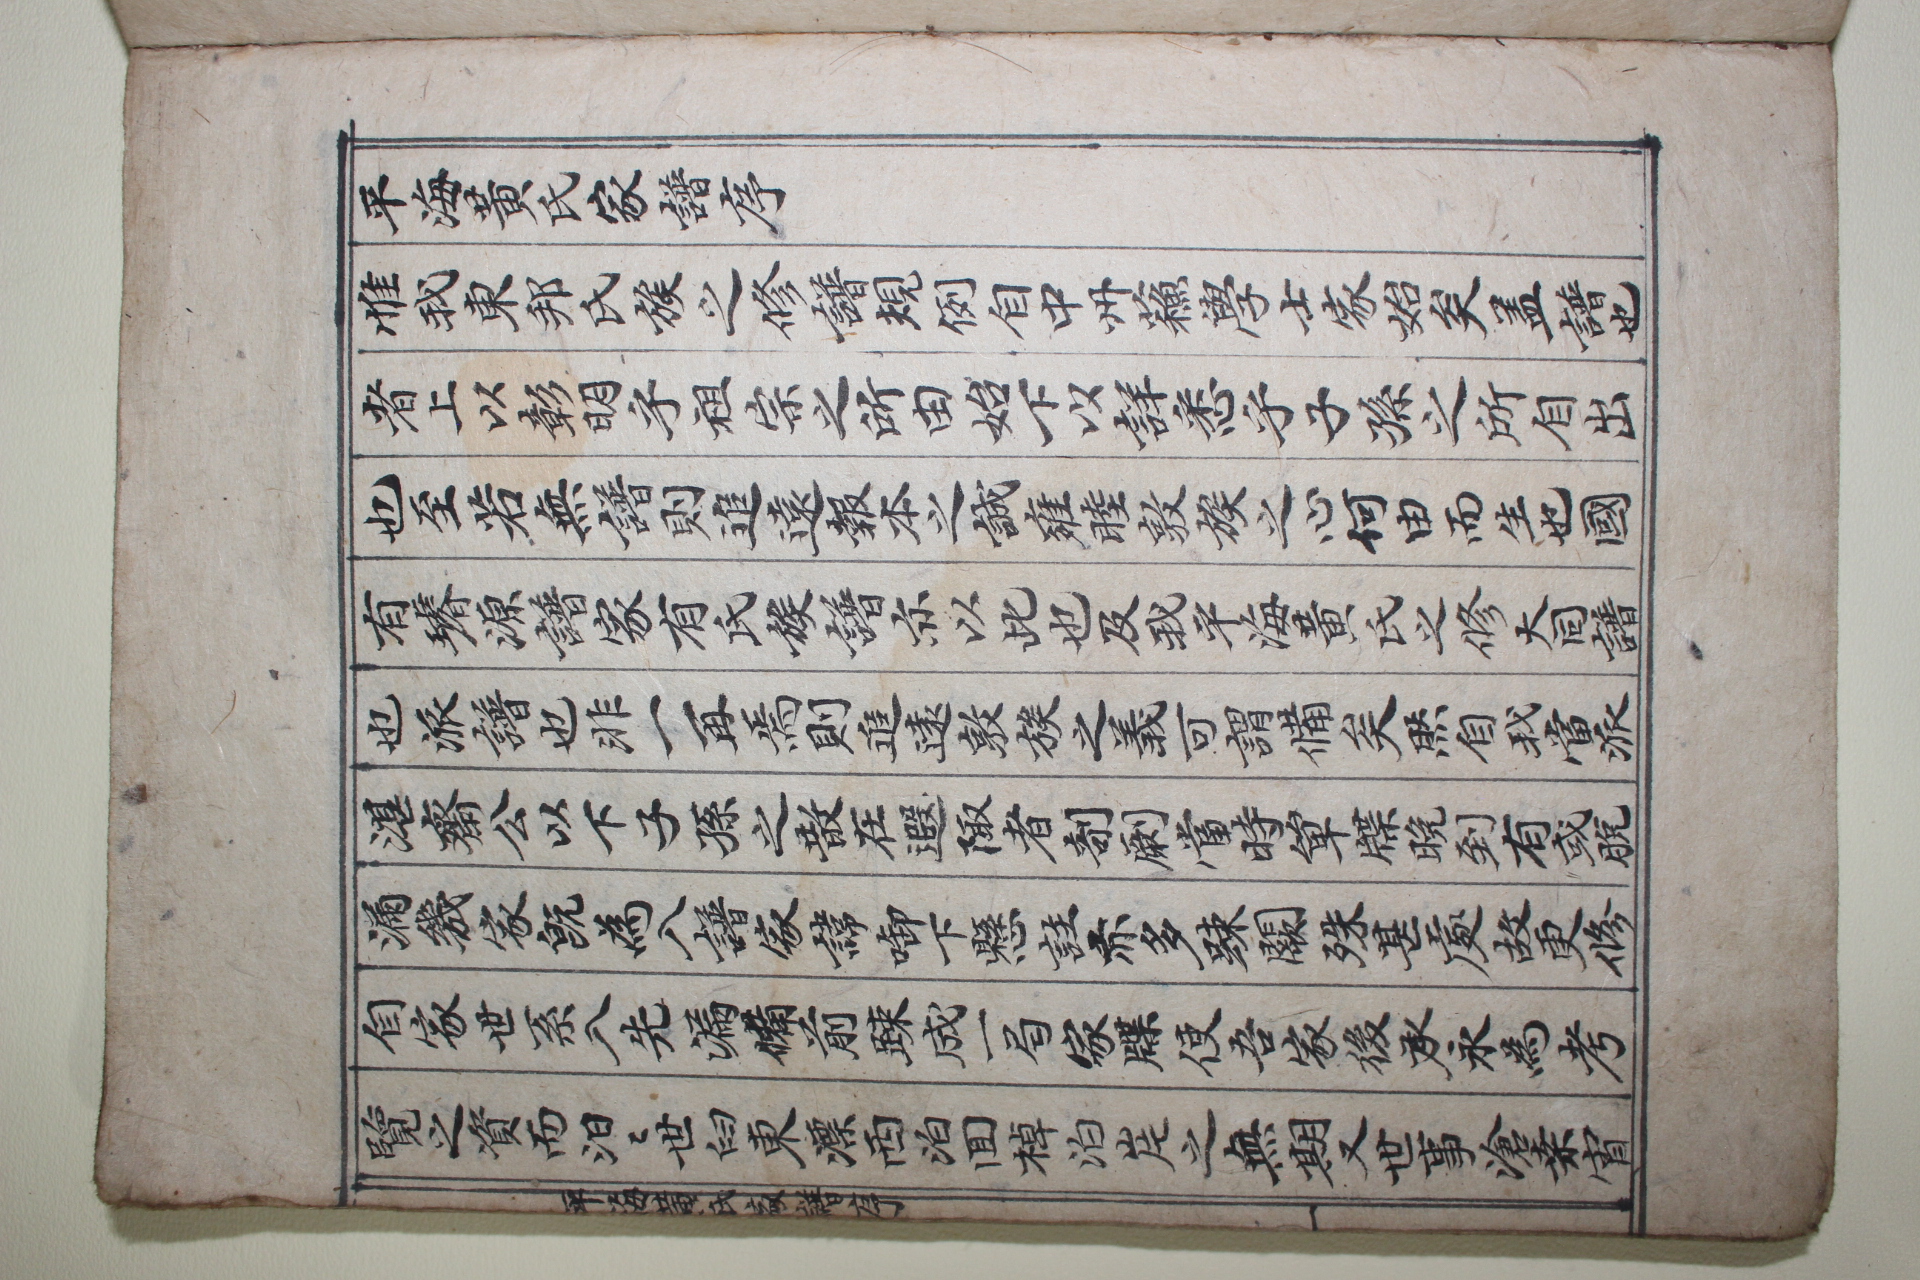 平海黃氏家譜序
惟我東邦氏族之修譜規例自中州蘓學士家始矣盖譜也
者上以彰明乎祖宗之所由始下以詳悉乎子孫之所自出
也至若無譜則追遠報本之誠雍睦敦族之心何由而生也國
有璿源譜家有氏族譜亦以此也及我平海黃氏之修大同譜
也派譜也非一再焉則追遠敦族之義可謂備矣然自我當派
湛齋公以下子孫之散在遐陬者剞劂當時單牒晚到有或脫
漏幾家旣爲入譜家諱啣下懸註亦多踈闕殊甚慶故更修
自家世系入先漏備前踈成一局家牒使吾家後承永爲考
覽之資而汩〻世臼東漂西泊回棹泊岸之無期又世事滄桑宵
平海黃氏家譜序